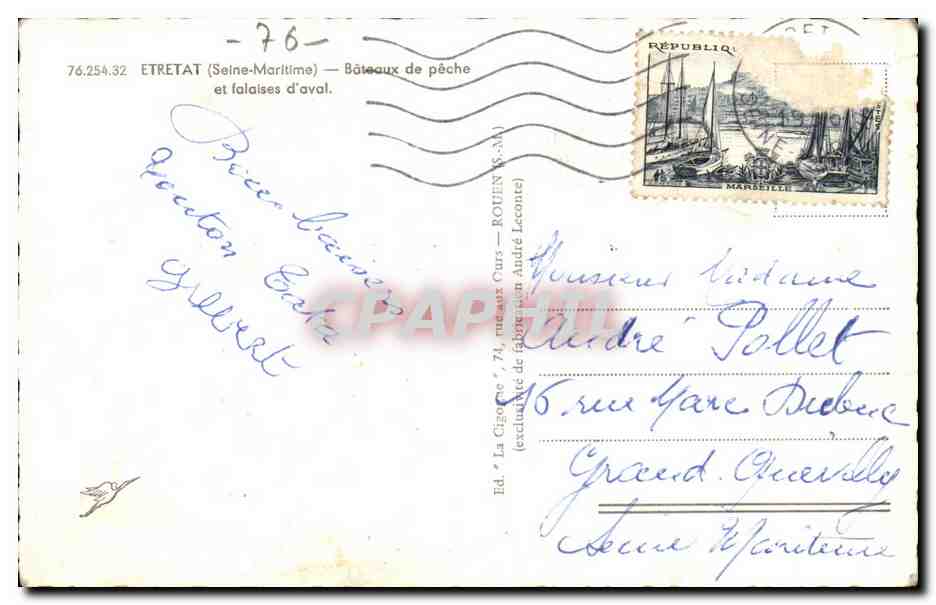 -76-
76.254.32 ETRETAT (Seine-Maritime) — Bâteaux de pêche
et falaises d'aval.
Bons baisers
Tonton
Gilbert
Ed. "La Cigogne", 74, rue aux Ours — ROUEN (S.-M.)
(exclusivité de fabrication André Leconte)
RÉPUBLIQ
MARSEILLE
Monsieur Madame
André Pollet
16 rue Marc Dubuc
Grand-Quevilly
Seine Maritime
CPAPHIL